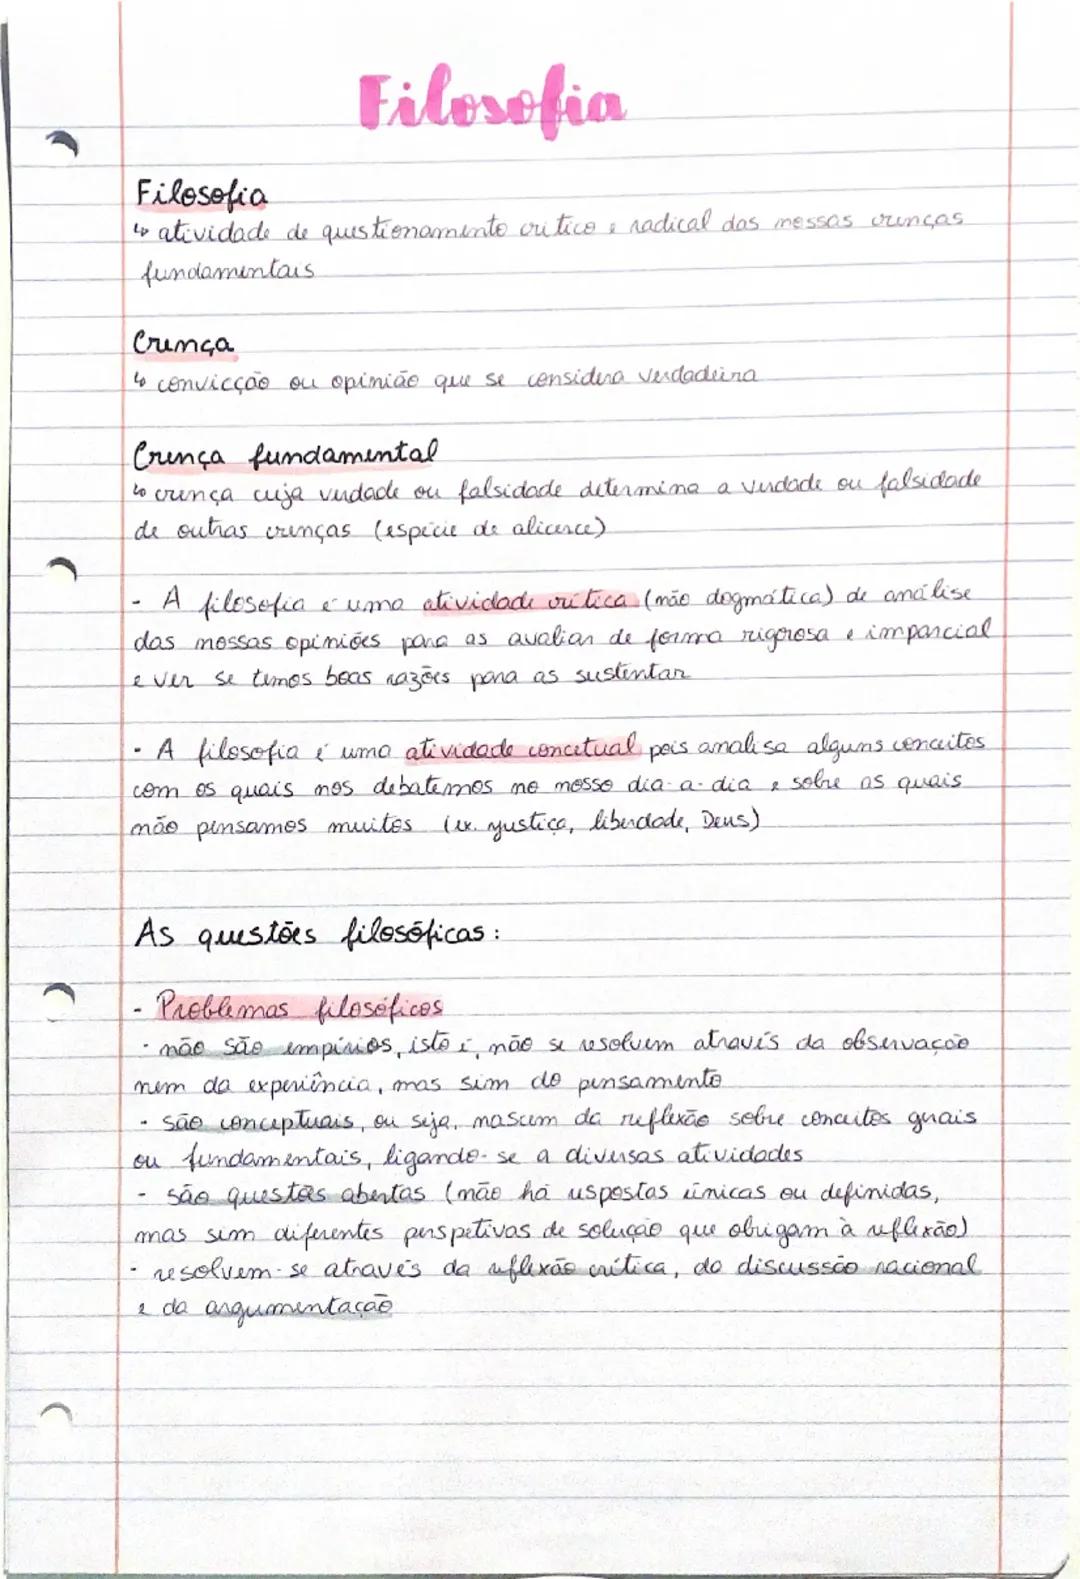 Filosofia
Filosofia
↳ atividade de questionamento crítico e radical das nossas crenças
fundamentais
Crença
↳ convicção ou opinião que se considera verdadeira
Crença fundamental
↳ crença cuja verdade ou falsidade determina a verdade ou falsidade
de outras crenças (espécie de alicerce)
- A filosofia é uma atividade crítica (não dogmática) de análise
das nossas opiniões para as avaliar de forma rigorosa e imparcial
e ver se temos boas razões para as sustentar
- A filosofia é uma atividade concetual pois analisa alguns conceitos
com os quais nos debatemos no nosso dia-a-dia e sobre as quais
não pensamos muitos (ex. justiça, liberdade, Deus)
As questões filosóficas:
- Problemas filosóficos
· não são empírios, isto é, não se resolvem através da observação
nem da experiência, mas sim do pensamento
· são conceptuais, ou seja, nascem da reflexão sobre conceitos gerais
ou fundamentais, ligando-se a diversas atividades
- são questões abertas (não há respostas únicas ou definidas,
mas sim diferentes perspetivas de solução que obrigam à reflexão)
· resolvem-se através da reflexão crítica, da discussão racional
e da argumentação